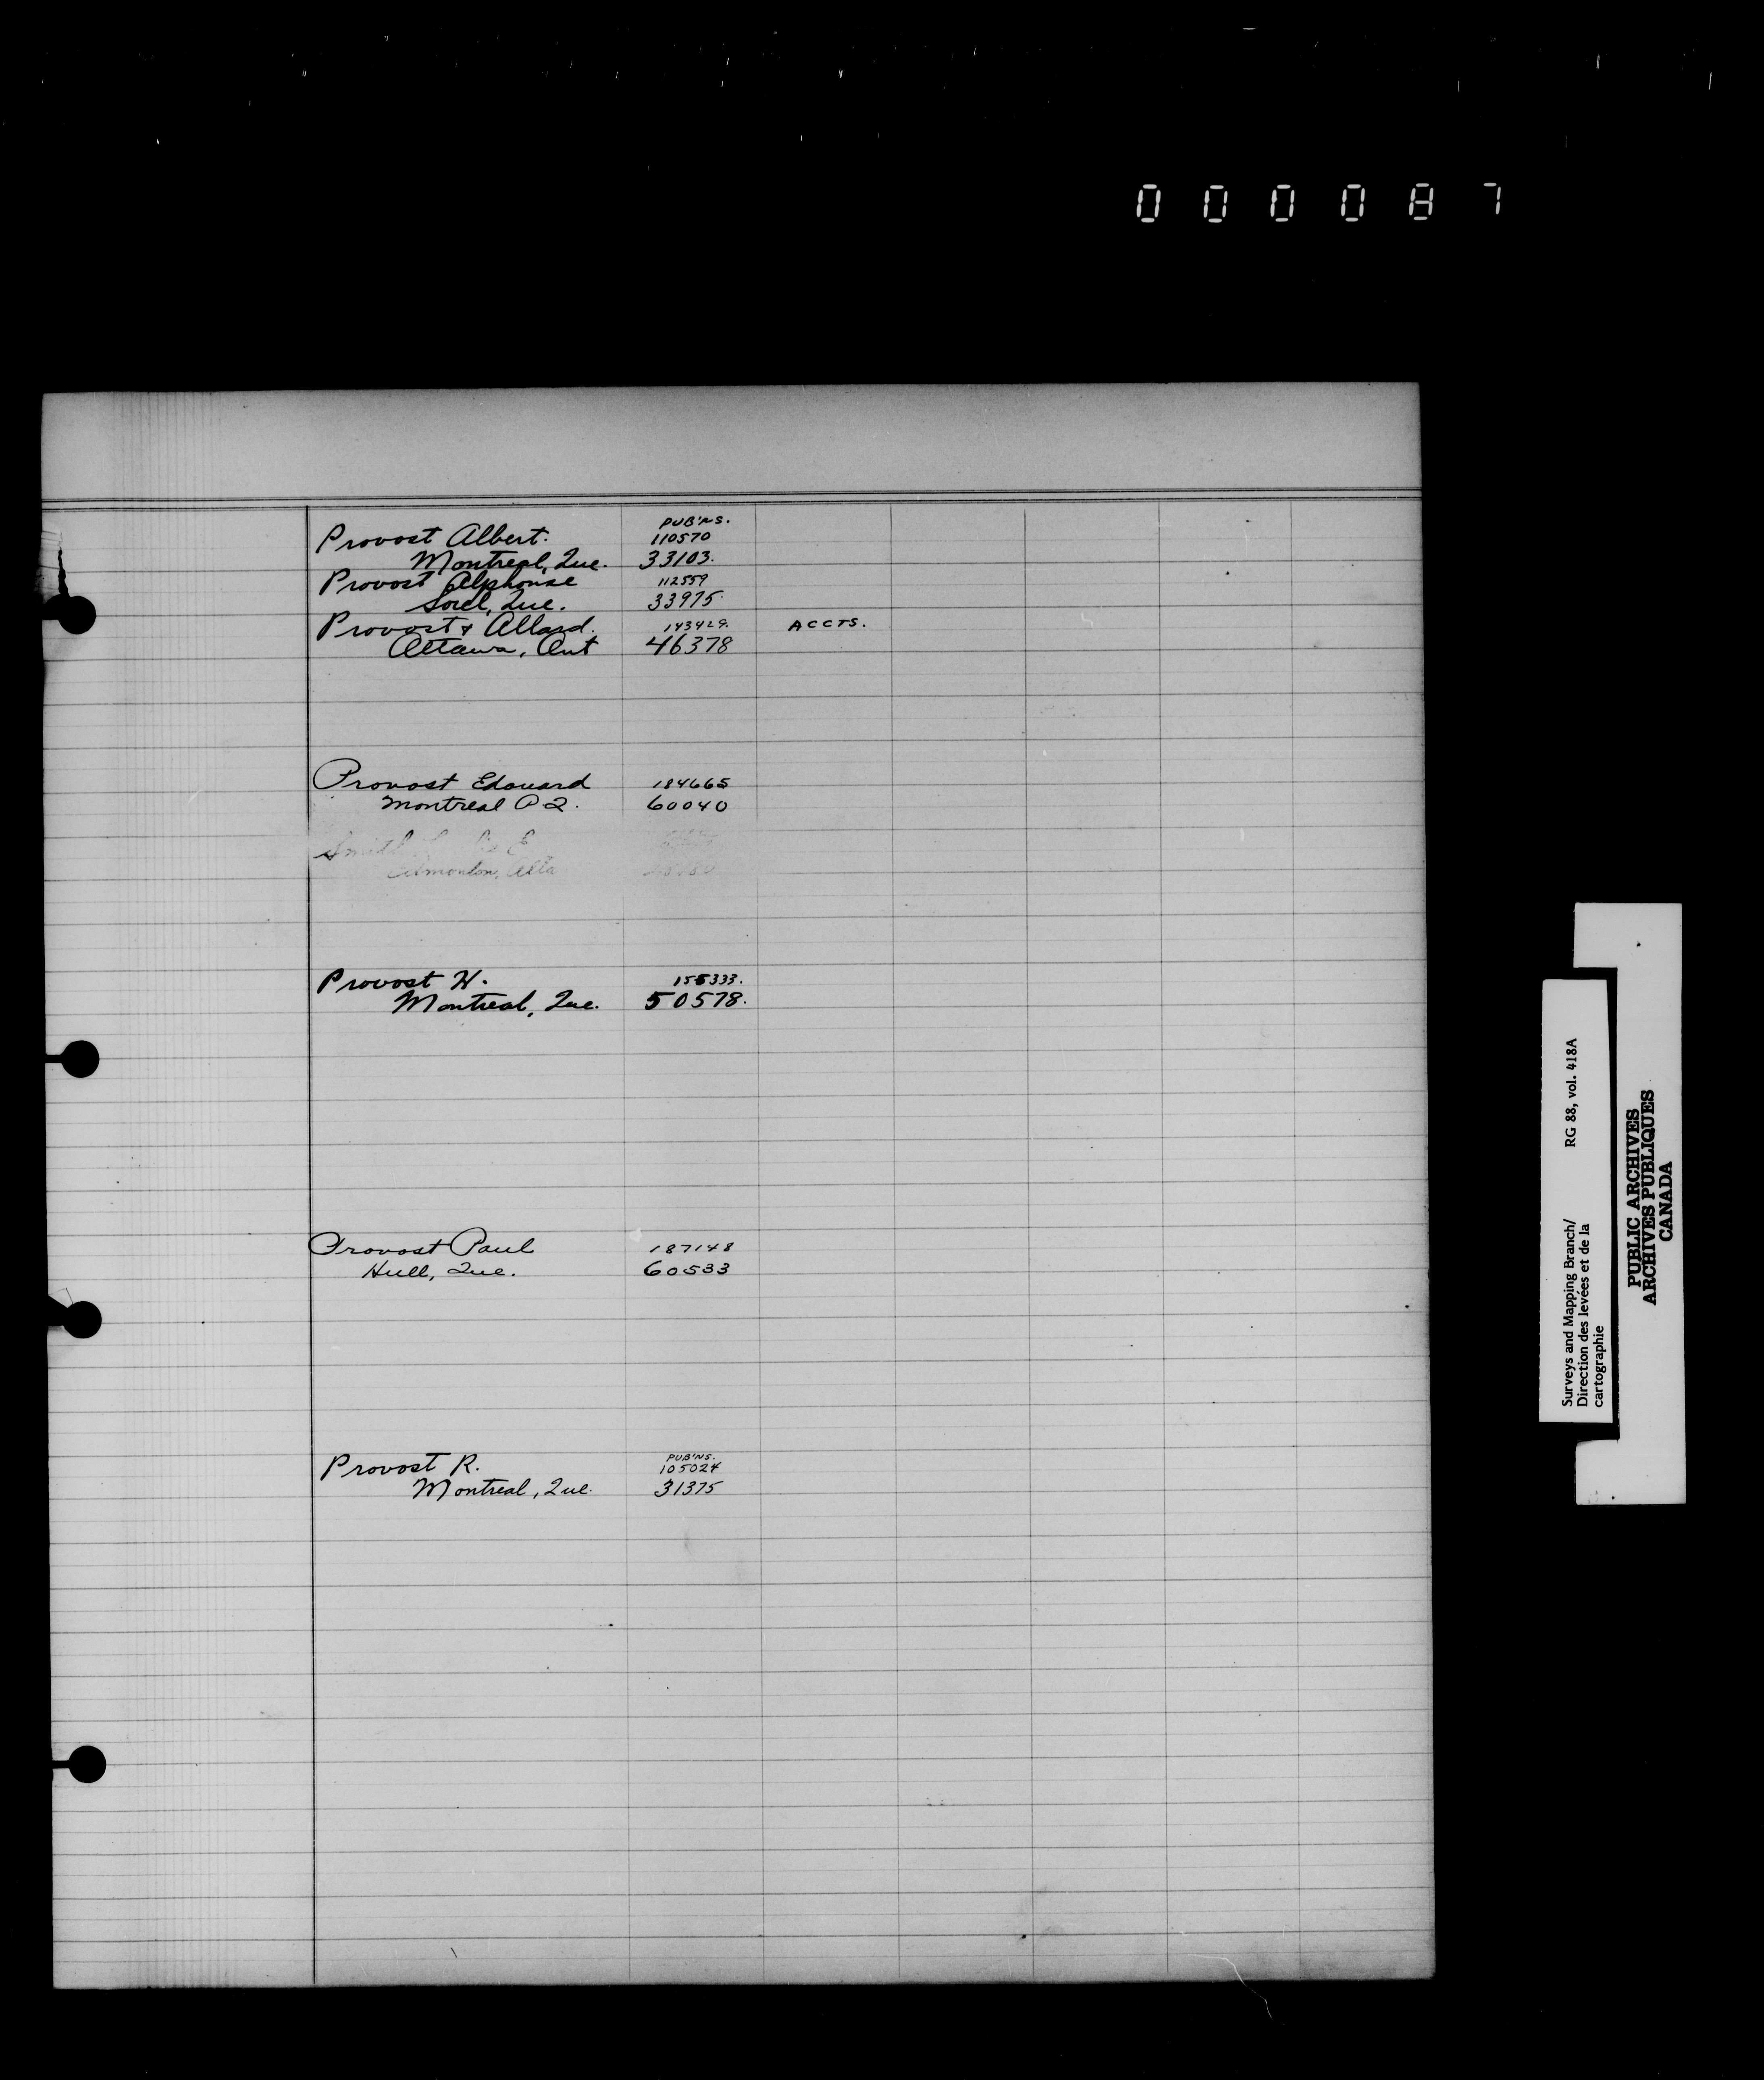 000087
PUB'NS.
Provost Albert. 110570
Montreal, Que. 33103.
Provost Alphonse 112559
Sorel, Que. 33975.
Provost & Allard. 143429. ACCTS.
Ottawa, Ont 46378
Provost Edouard 184665
Montreal P Q. 60040
Smith E
Edmonton, Alta
Provost H. 155333.
Montreal, Que. 50578.
Provost Paul 187148
Hull, Que. 60533
PUB'NS.
Provost R. 105024
Montreal, Que. 31375
Surveys and Mapping Branch/ RG 88, vol. 418A
Direction des levées et de la
cartographie
PUBLIC ARCHIVES
ARCHIVES PUBLIQUES
CANADA